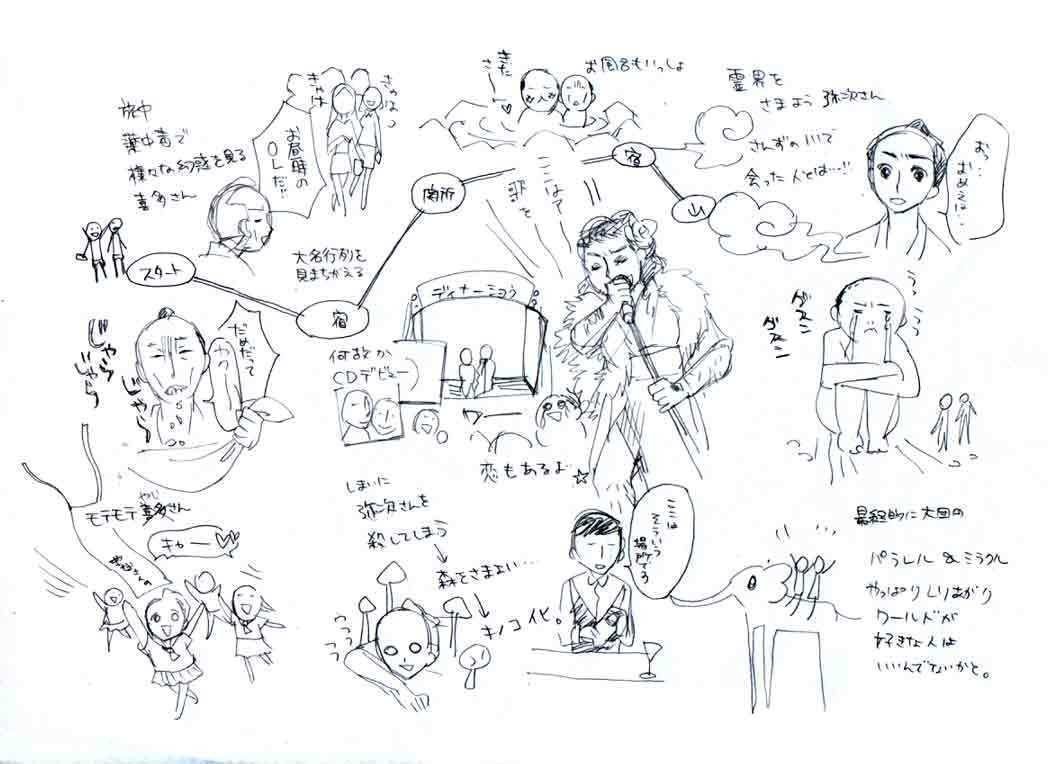 旅中
薬中毒で
様々な幻惑を見る
喜多さん
お昼時の
OLだ!!
きゃは
きゃは
大名行列を
見まちがえる
スタート
宿
関所
宿
山
きた
さ
お風呂もいっしょ
霊界を
さまよう 弥次さん
さんずの川で
会った人とは…!!
おっ…
おめえは…
ここは?
歌を
ディナーショウ
何故か
CDデビュー
ワー
恋もあるよ☆
じゃら
じゃら
じゃら
だめだって
うっ
うっ
ダズニ
ダズニ
モテモテ喜多さん
やじ
キャー
しまいに
弥次さんを
殺してしまう
森をさまよい…
キノコ化。
うつうつ
ここは
そういう
場所でる
最終的に大団円
パラレル&ミラクル
やっぱりしりあがり
ワールドが
好きな人は
いいんでないかと。